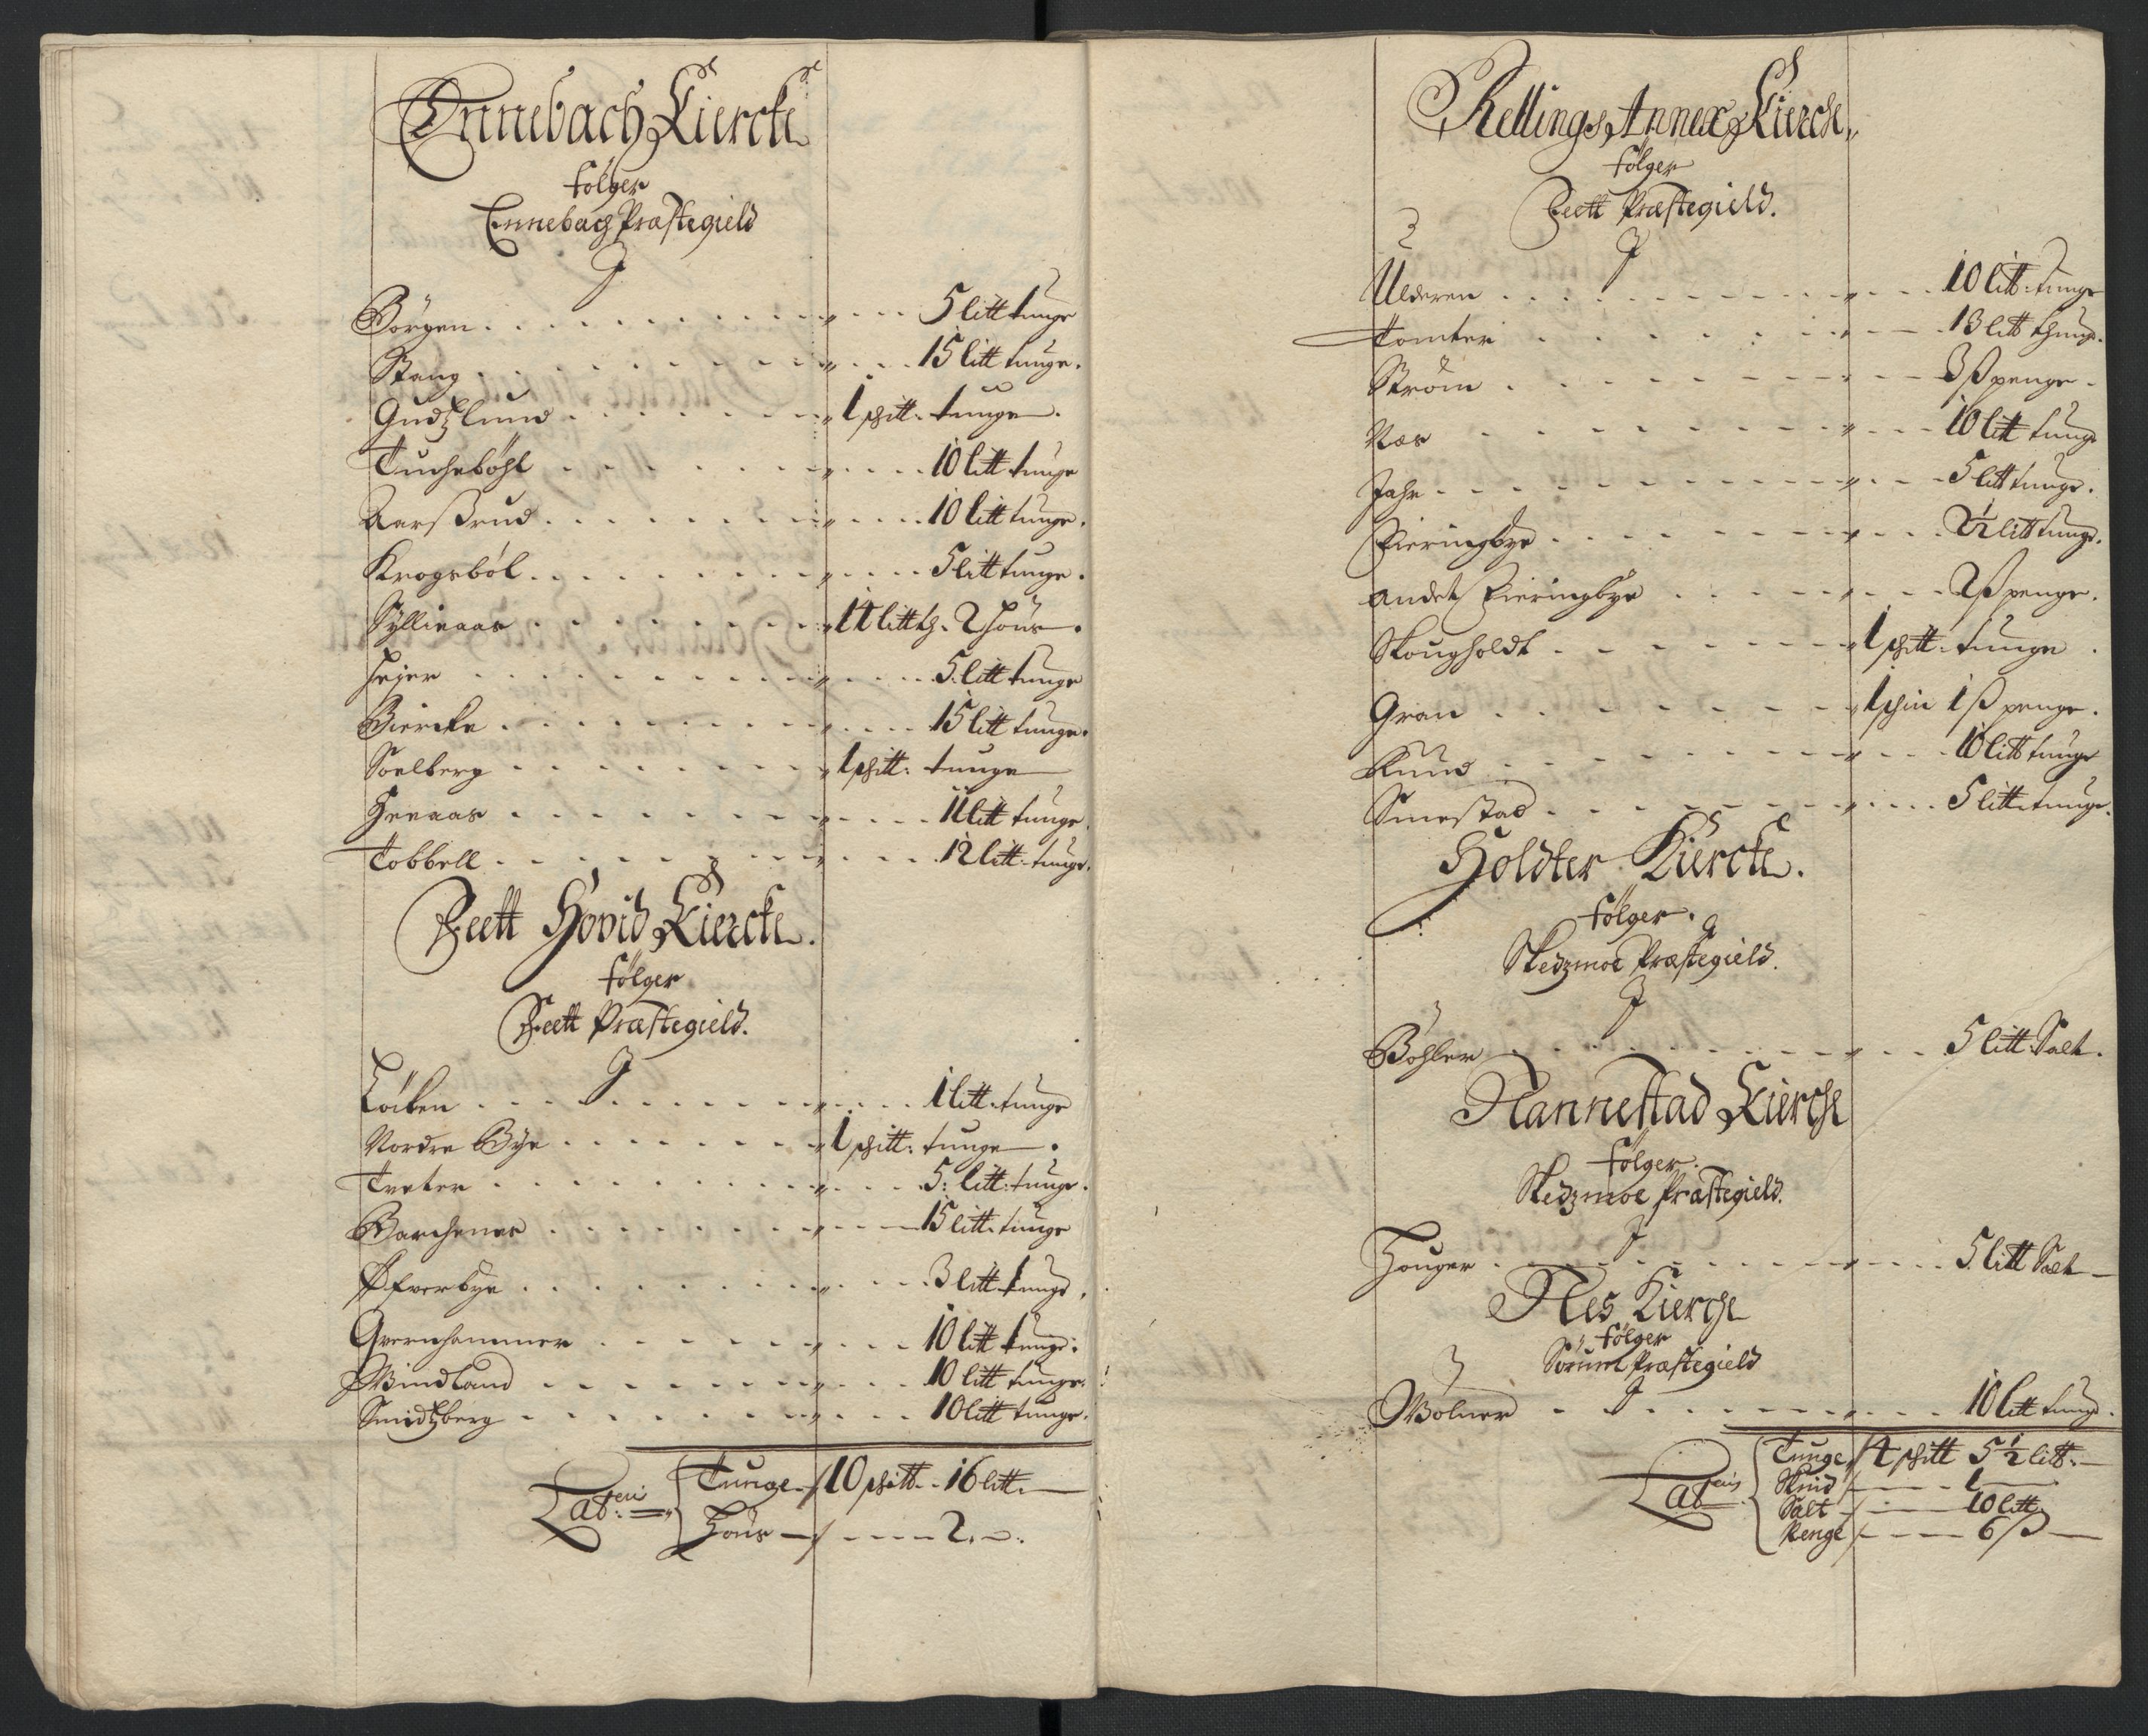 Ennebach Kiercke
følger
Ennebach Præstegield
J
Børgen 5 litt tunge
Stang 15 litt tunge.
Gudtzlund 1 schitt. tunge.
Tuchebøhl 10 litt tunge
Aarsrud 10 litt tunge.
Krogsbøl 5 litt tunge.
Syllieaas 14 litt th. 2 Høns.
Heier 5 litt tunge
Biercke 15 litt tunge.
Soelberg 1 schitt: tunge
Geeaas 11 litt tunge.
Tobbell 12 litt. tunge.
Feett Hovid Kiercke.
følger
Feett Præstegield.
J
Løcken 1 litt. tunge
Nordre Bye 1 schitt: tunge.
Tveter 5: litt: tunge.
Barchenes 15 litt. tunge
Øfverbye 3 litt tunge.
Qvernhammer 10 litt tunge.
Windland 10 litt tunge.
Smidtzberg 10 litt tunge.
Lateri Tunge 10 schitt. 16 litt.
Høns 2.
Kellings Annex Kierche
følger
Feett Præstegield.
J
Ulderen 10 litt. tunge
Tomter 13 litt thung.
Strøm 3 ß penge.
Næs 10 litt tunge
Jahr 5 litt tunge.
Fieringbye 2½ litt tunge.
andet Fieringbye 2 ß penge.
Skougholdt 1 schitt: tunge.
Gran 1 schin 1 ß penge.
Rund 10 litt tunge
Smestad 5 litt tunge.
Holdter Kiercke.
følger.
Skedzmoe Præstegield.
J
Bøhler 5 litt Salt.
Nannestad Kierche
følger.
Skedzmoe Præstegield.
J
Houger 5. litt Salt
Nes Kierche
følger
Sørum Præstegield
J
Wolner 10 litt tunge.
Lateris Tunge 4 schitt 5½ litt.
Skind 1
Salt 10 litt
Penge 6 ß